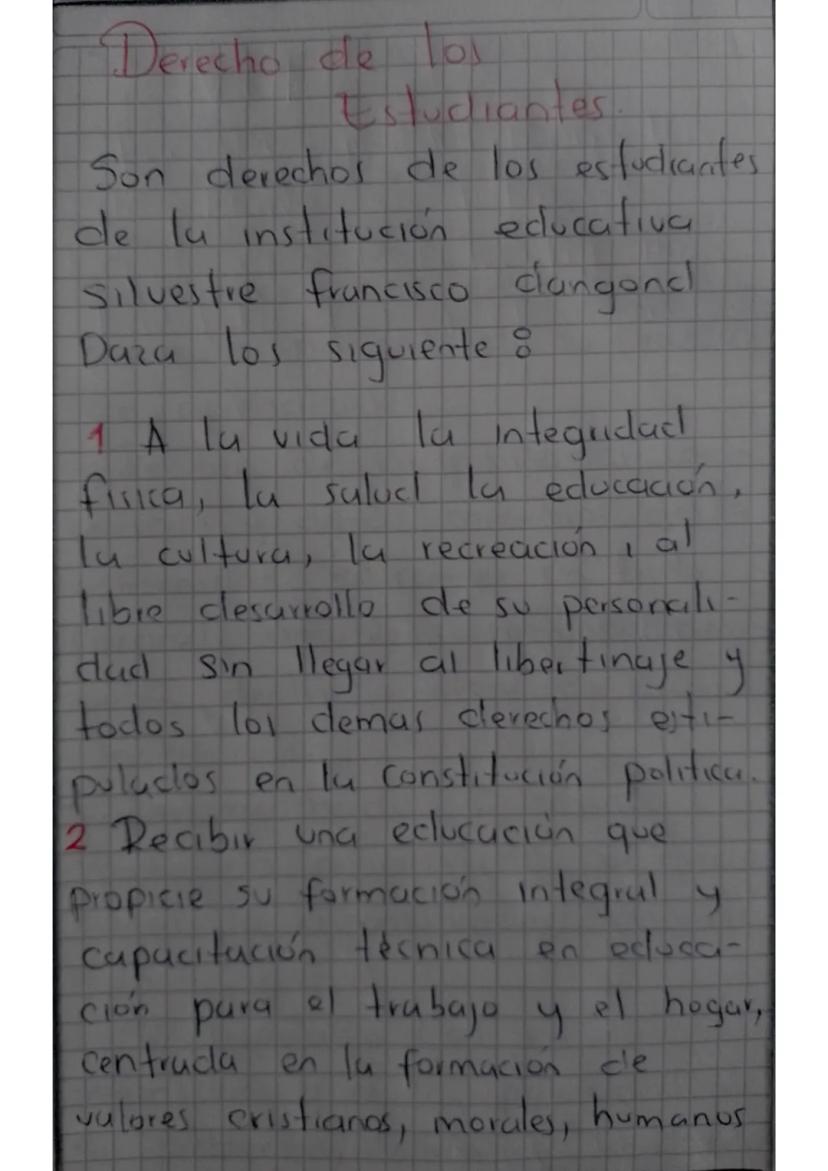 Derecho de los
Estudiantes.
Son derechos de los estudiantes
de la institución educativa
silvestre francisco dangond
Daza los siguiente :
1 A la vida la integridad
fisica, la salud la educación,
la cultura, la recreación, al
libre desarrollo de su personali-
dad sin llegar al libertinaje y
todos los demas derechos esti-
pulados en la constitución politica.
2 Recibir una educación que
propicie su formación integral y
capacitación técnica en educa-
ción para el trabajo y el hogar,
centrada en la formación de
valores cristianos, morales, humanos